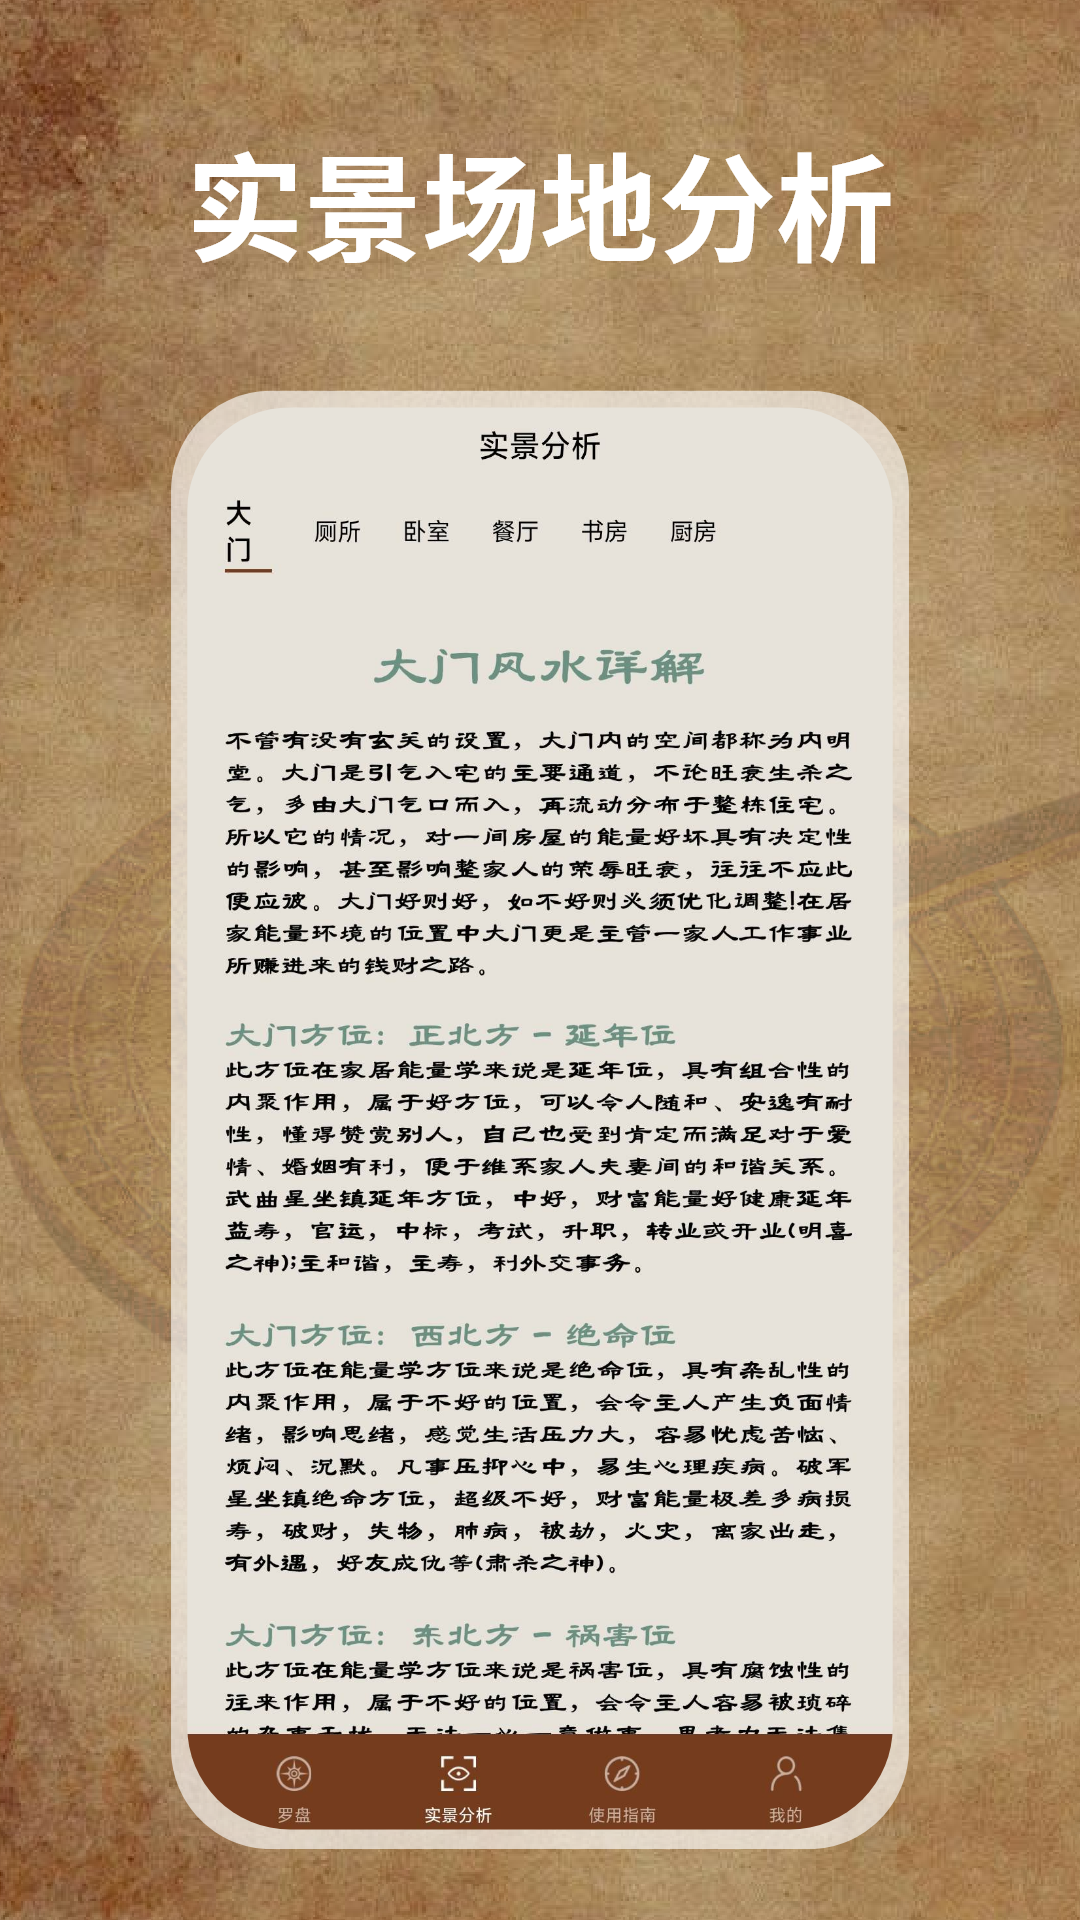 实景场地分析
实景分析
大门
厕所 卧室 餐厅 书房 厨房
大门风水详解
不管有没有玄关的设置，大门内的空间都称为内明
堂。大门是引气入宅的主要通道，不论旺衰生杀之
气，多由大门气口而入，再流动分布于整栋住宅。
所以它的情况，对一间房屋的能量好坏具有决定性
的影响，甚至影响整家人的荣辱旺衰，往往不应此
便应彼。大门好则好，如不好则必须优化调整!在居
家能量环境的位置中大门更是主管一家人工作事业
所赚进来的钱财之路。
大门方位：正北方 - 延年位
此方位在家居能量学来说是延年位，具有组合性的
内聚作用，属于好方位，可以令人随和、安逸有耐
性，懂得赞赏别人，自己也受到肯定而满足对于爱
情、婚姻有利，便于维系家人夫妻间的和谐关系。
武曲星坐镇延年方位，中好，财富能量好健康延年
益寿，官运，中标，考试，升职，转业或开业(明喜
之神);主和谐，主寿，利外交事务。
大门方位：西北方 - 绝命位
此方位在能量学方位来说是绝命位，具有杂乱性的
内聚作用，属于不好的位置，会令主人产生负面情
绪，影响思绪，感觉生活压力大，容易忧虑苦恼、
烦闷、沉默。凡事压抑心中，易生心理疾病。破军
星坐镇绝命方位，超级不好，财富能量极差多病损
寿，破财，失物，肺病，被劫，火灾，离家出走，
有外遇，好友成仇等(肃杀之神)。
大门方位：东北方 - 祸害位
此方位在能量学方位来说是祸害位，具有腐蚀性的
往来作用，属于不好的位置，会令主人容易被琐碎
罗盘 实景分析 使用指南 我的